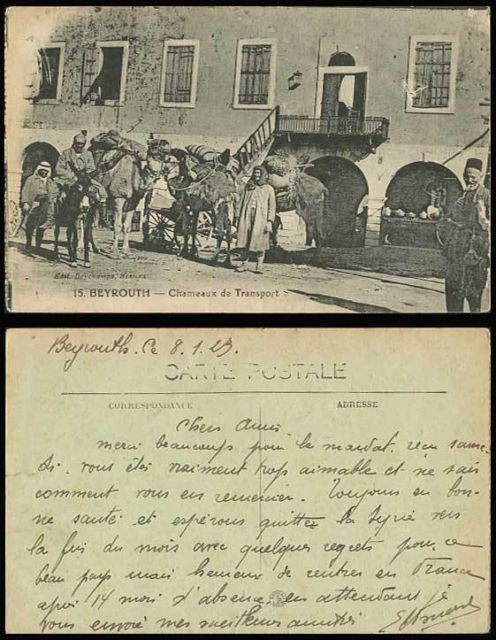 15. BEYROUTH — Chameaux de Transport
Beyrouth. Ce 8.1.23.
CARTE POSTALE
CORRESPONDANCE
ADRESSE
Chers Amis
merci beaucoup pour le mandat. reçu
di. vous êtes vraiment trop aimable et ne sais
comment vous en remercier. Toujours en bon-
ne santé et espérons quitter la Syrie vers
la fin du mois avec quelques regrets pour ce
beau pays mais heureux de rentrer en France
après 14 mois d'absence. en attendant je
vous envoie mes meilleures amitiés